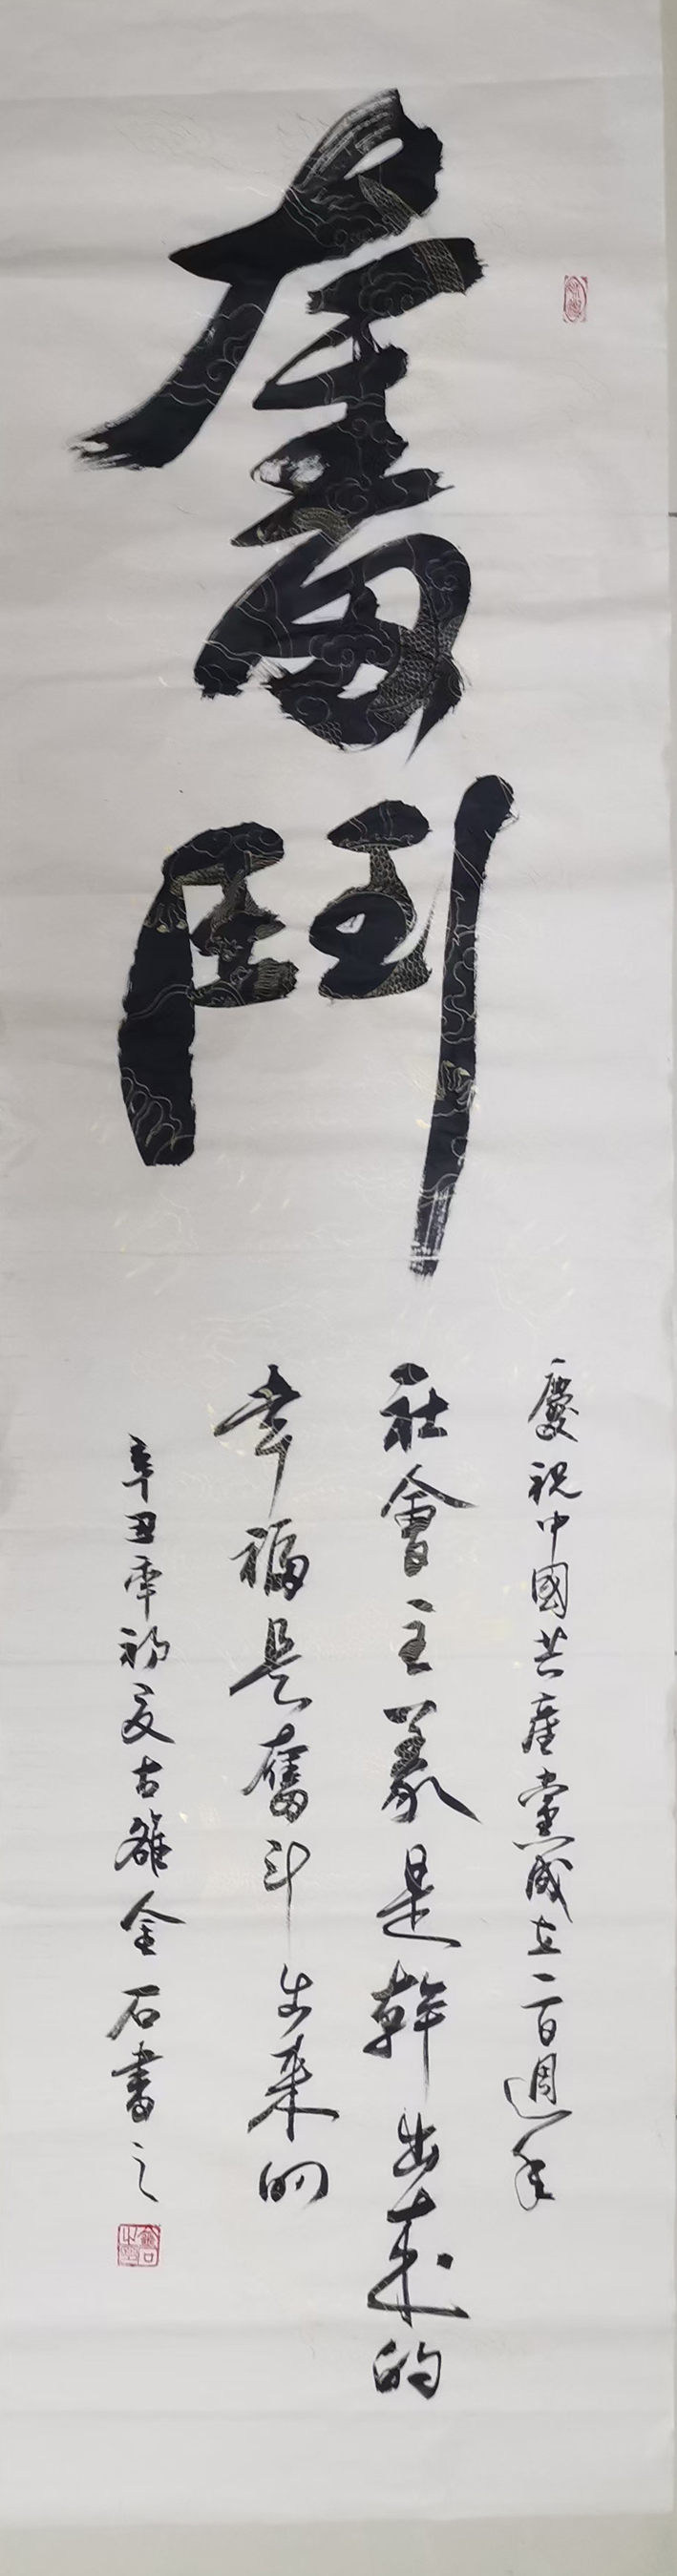 奮鬥
慶祝中國共產黨成立一百週年
社會主義是幹出來的
幸福是奮斗出来的
辛丑年初夏古雒金石書之